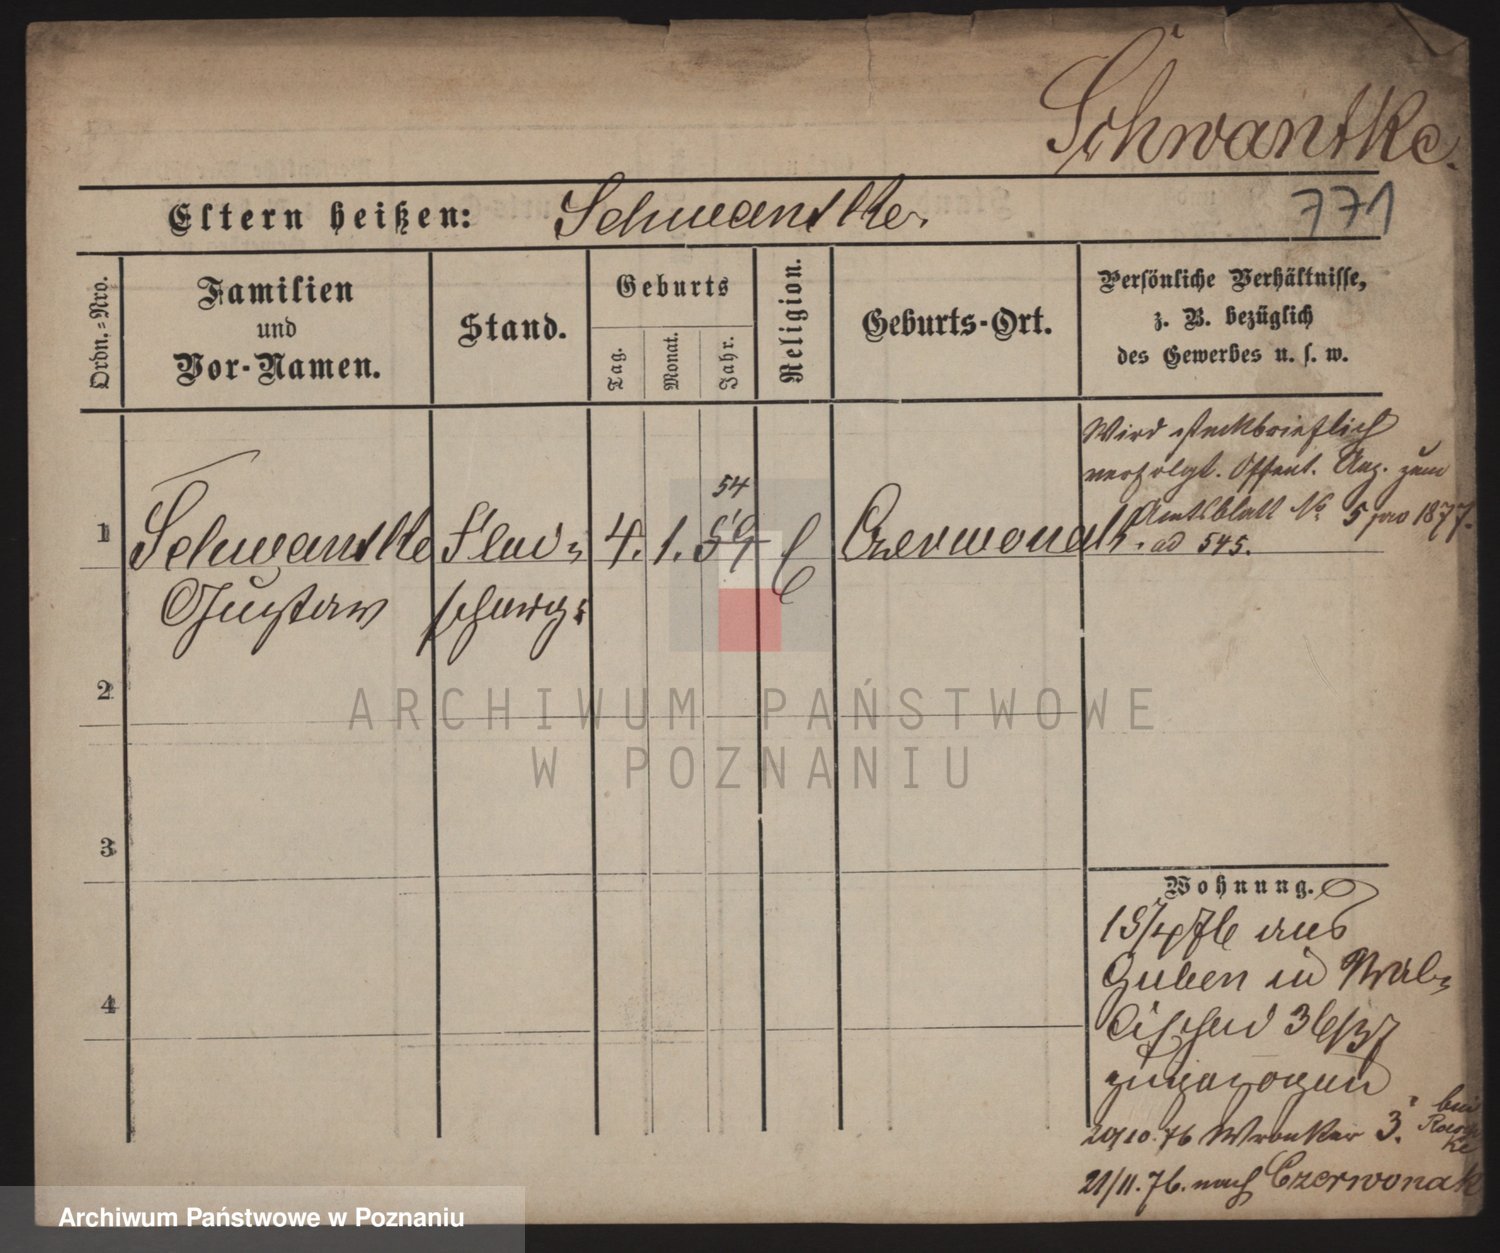 Schwantke.
771
Eltern heißen: Schwantke.
Ordn.=Nro.
Familien
und
Vor-Namen.
Stand.
Geburts
Tag.
Monat.
Jahr.
Religion.
Geburts-Ort.
Persönliche Verhältnisse,
z. B. bezüglich
des Gewerbes u. s. w.
Wird steckbrieflich
verfolgt. Öffent. Anz. zum
Amtsblatt No 5 pro 1877.
ad 545.
54
1 Schwantke 4. 1. Czerwonak
Gustav
2
3
4
Wohnung.
aus
Guben in Wal-
lischei 36/37
zugezogen
20/10. 76 Wronker 3. bei
21/11. 76. nach Czerwonak
ARCHIWUM PAŃSTWOWE
W POZNANIU
Archiwum Państwowe w Poznaniu